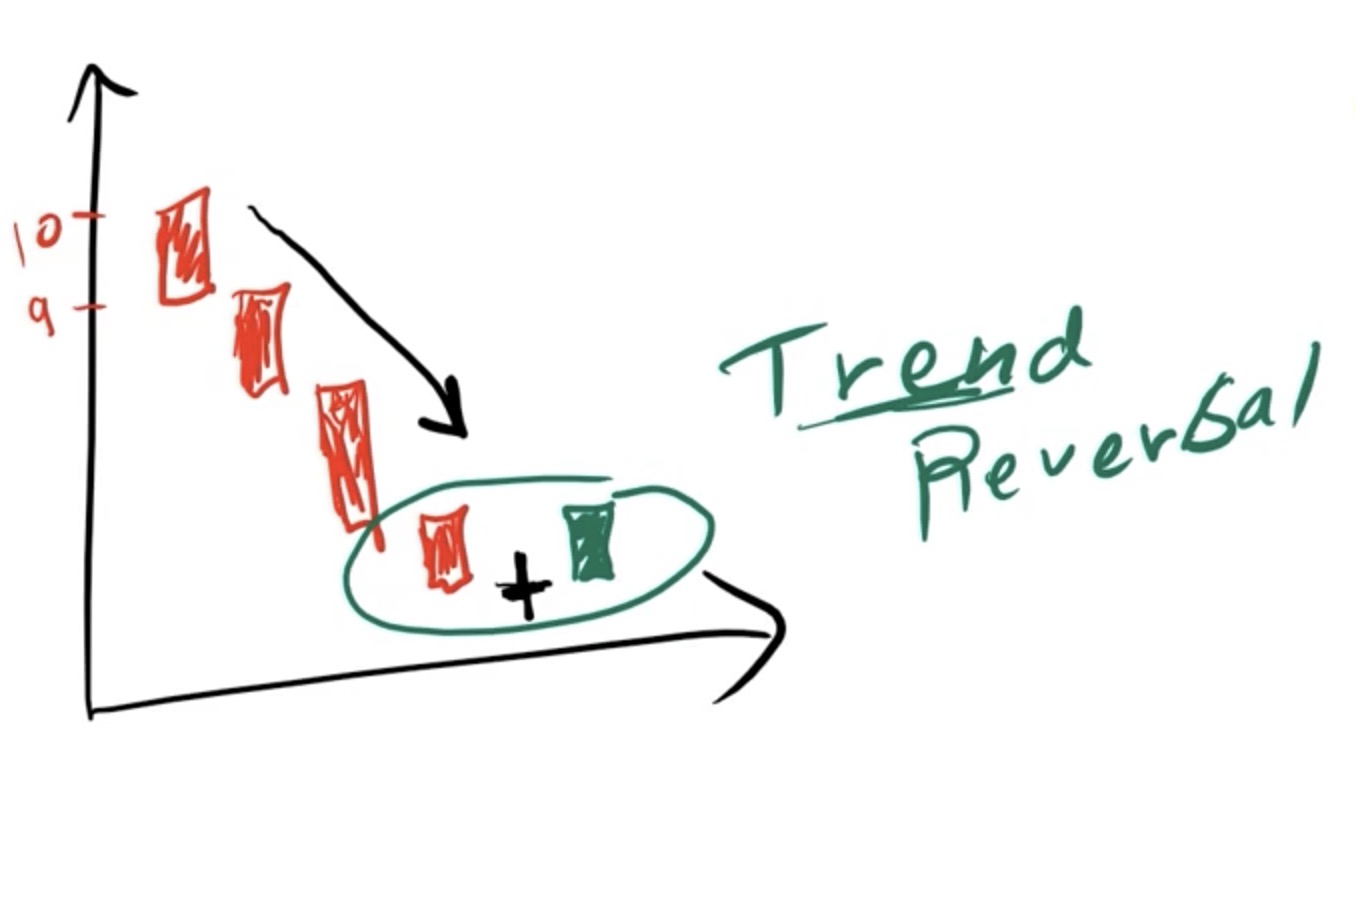 10
9
Trend
Reversal
+